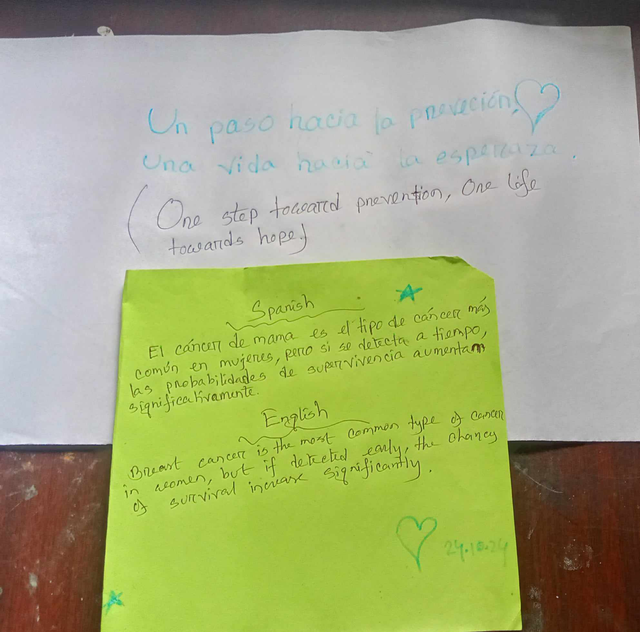 Un paso hacia la preveción,
una vida hacia la esperaza.
(One step toward prevention, One life
towards hope)
Spanish
El cáncer de mama es el tipo de cáncer más
común en mujeres, pero si se detecta a tiempo,
las probabilidades de supervivencia aumentan
significativamente.
English
Breast cancer is the most common type of cancer
in women, but if detected early, the chances
of survival increase significantly.
24.10.24